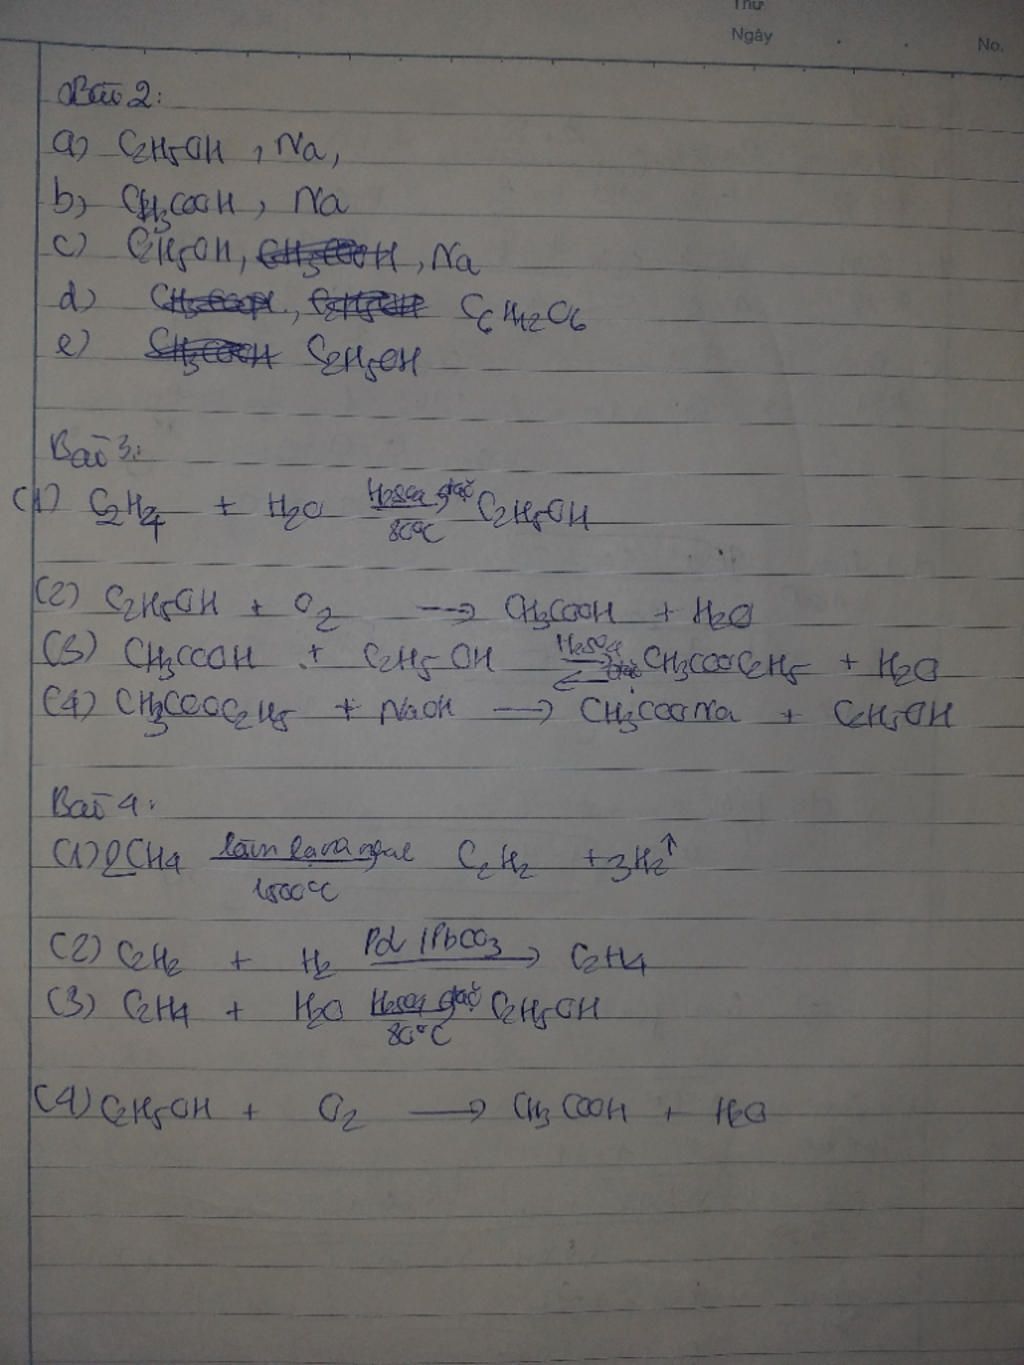 Thứ
Ngày . . No.
Bài 2:
a) C2H5OH , Na,
b) CH3COOH, Na
c) C2H5OH, CH3COOH, Na
d) CH3COOH, C2H5OH C6H12O6
e) CH3COOH C2H5OH
Bài 3:
(1) C2H4 + H2O H2SO4 đặc 80°C C2H5OH
(2) C2H5OH + O2 → CH3COOH + H2O
(3) CH3COOH + C2H5OH H2SO4 đặc ⇌ CH3COOC2H5 + H2O
(4) CH3COOC2H5 + NaOH → CH3COONa + C2H5OH
Bài 4:
(1) 2CH4 làm lạnh 1500°C C2H2 + 3H2↑
(2) C2H2 + H2 Pd/PbCO3 → C2H4
(3) C2H4 + H2O H2SO4 đặc 80°C C2H5OH
(4) C2H5OH + O2 → CH3COOH + H2O